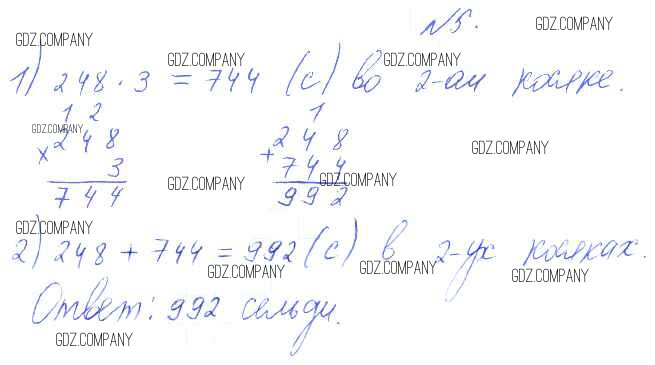 №5.
1) 248 · 3 = 744 (с) во 2-ом косяке.
1 2
248
× 3
744
1
248
+ 744
992
2) 248 + 744 = 992 (с) в 2-ух косяках.
Ответ: 992 сельди.
GDZ.COMPANY
GDZ.COMPANY
GDZ.COMPANY
GDZ.COMPANY
GDZ.COMPANY
GDZ.COMPANY
GDZ.COMPANY
GDZ.COMPANY
GDZ.COMPANY
GDZ.COMPANY
GDZ.COMPANY
GDZ.COMPANY
GDZ.COMPANY